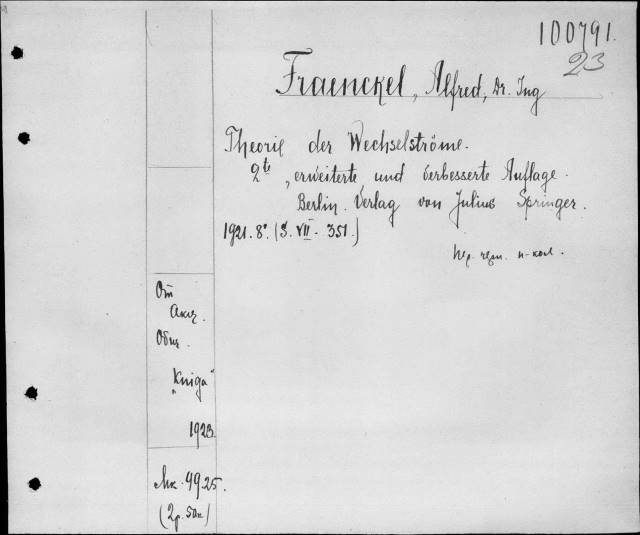 100791.
23
Fraenckel, Alfred, Dr. Ing
Theorie der Wechselströme.
2te, erweiterte und verbesserte Auflage.
Berlin. Verlag von Julius Springer.
1921. 8°. (S. VII - 351.)
От
Акц.
Общ.
"Kniga"
1923.
Мк. 99.25.
(2р. 50к.)